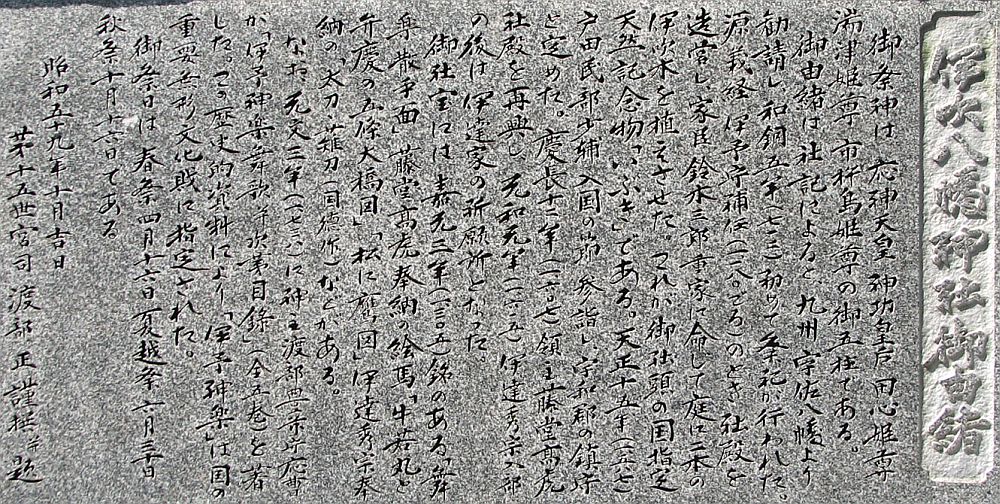 伊吹八幡神社御由緒
御祭神は 応神天皇 神功皇后 田心姫尊
湍津姫尊 市杵島姫尊の御五柱である。
御由緒は社記によると、九州 宇佐八幡より
勧請し 和銅五年(七一二)初めて祭祀が行われた。
源義経 伊予守補任(一一八〇ごろ)のとき 社殿を
造営し 家臣鈴木三郎重家に命して庭に二本の
伊吹木を植えさせた。これが御社頭の国指定
天然記念物「いぶき」である。天正十五年(一五八七)
戸田民部少輔 入国の節 参詣し 宇和郡の鎮守
と定めた。慶長十二年(一六〇七)領主藤堂高虎
社殿を再興し 元和元年(一六一五)伊達秀宗入部
の後は 伊達家の祈願所となった
御社宝には 嘉元三年(一三〇五)銘のある「舞
楽散手面」藤堂高虎奉納の絵馬「牛若丸と
弁慶の五條大橋図」「松に鷹の図」伊達秀宗奉
納の「太刀・薙刀(国徳作)などがある。
なお 元文三年(一七三八)に神主渡部豊宗守応世
が「伊予神楽舞歌并次第目録」(全五巻)を著
した。この歴史的資料により「伊予神楽」は国の
重要無形文化財に指定された。
御祭日は 春祭四月十六日 夏越祭六月三十日
秋祭十月十六日である
昭和五十九年十月吉日
第十五世宮司 渡部 正 謹撰并題